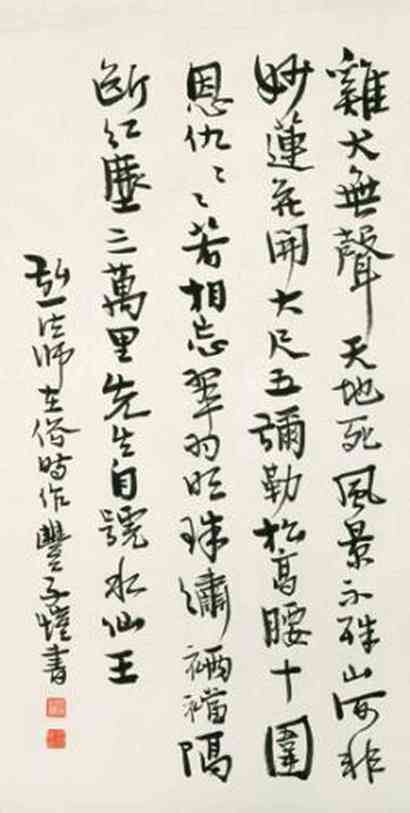 雞犬無聲天地死風景不殊山河非
妙蓮花開大尺五彌勒松高腰十圍
恩仇々々若相忘翠羽明珠繡裲襠隔
斷紅塵三萬里先生自號水仙王
弘一法師在俗時作豐子愷書